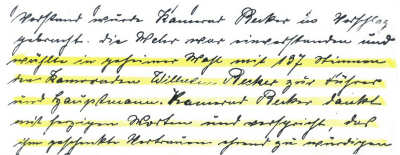 Vorstand wurde Kamerad Becker in Vorschlag
gebracht. die Wehr war einverstanden und
wählte in geheimer Wahl mit 137 Stimmen
den Kameraden Wilhelm Becker zur Führer
und Hauptmann. Kamerad Becker dankt
mit herzigen Worten und verspricht, das
ihm geschenkte Vertrauen ehrend zu würdigen